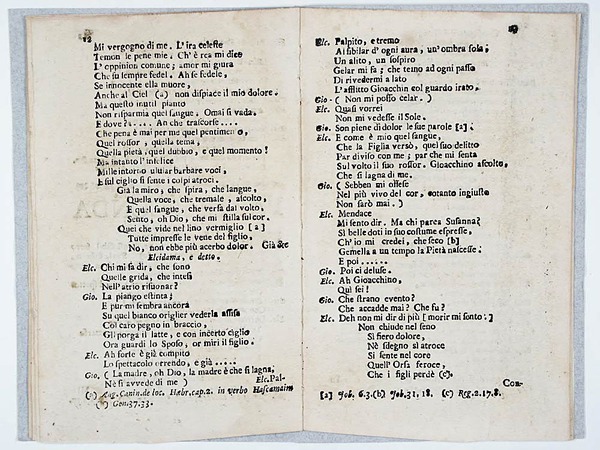 12
Mi vergogno di me. L'ira celeste
Temon le pene mie. Ch'è rea mi dice
L'oppinion comune; amor mi giura
Che fu sempre fedel. Ah se fedele,
Se innocente ella muore,
Anche al Ciel (a) non dispiace il mio dolore.
Ma questo inutil pianto
Non risparmia quel sangue. Omai si vada.
E dove?..... An che trascorse....
Che pena è mai per me quel pentimento,
Quel rossor, quella tema,
Quella pietà, quel dubbio, e quel momento!
Ma intanto l'infelice
Mille intorno ulular barbare voci,
E sul ciglio si sente i colpi atroci.
Già la miro; che spira, che langue,
Quella voce, che tremale, ascolto,
E quel sangue, che versa dal volto,
Sento, oh Dio, che mi stilla sul cor.
Quei che vide nel lino vermiglio [a]
Tutte impresse le vene del figlio,
No, non ebbe più acerbo dolor. Già &c
Elcidama, e detto.
Elc. Chi mi sa dir, che sono
Quelle grida, che intesi
Nell'atrio risuonar?
Gio. La piango estinta;
E pur mi sembra ancora
Su quel bianco origlier vederla assisa
Col caro pegno in braccio,
Gli porga il latte, e con incerto ciglio
Ora guardi lo Sposo, or miri il figlio.
Elc. Ah forse è già compito
Lo spettacolo orrendo, e già.....
Gio. (La madre, oh Dio, la madre è che si lagna,
Nè si avvede di me) Elc. Pal-
(a) Ang. Canin. de loc. Hebr. cap. 2. in verbo Hascamaim
(a) Gen. 37. 33.
Elc. Palpito, e tremo
Al sibilar d'ogni aura, un'ombra sola,
Un alito, un sospiro
Gelar mi fa; che temo ad ogni passo
Di rivedermi a lato
L'afflitto Gioacchin col guardo irato.
Gio. (Non mi posso celar.)
Elc. Quasi vorrei
Non mi vedesse il Sole.
Gio. Son piene di dolor le sue parole [a].
Elc. E come è mio quel sangue,
Che la Figlia versò, quel suo delitto
Par diviso con me; par che mi senta
Sul volto il suo rossor. Gioacchino ascolto,
Che si lagna di me.
Gio. (Sebben mi offese
Nel più vivo del cor, cotanto ingiusto
Non sarò mai.)
Elc. Mendace
Mi sento dir. Ma chi parea Susanna?
Sì belle doti in suo costume espresse,
Ch'io mi credei, che seco [b]
Gemella a un tempo la Pietà nascesse.
E poi......
Gio. Poi ci deluse.
Elc. Ah Gioacchino,
Qui sei!
Gio. Che strano evento?
Che accadde mai? Che fu?
Elc. Deh non mi dir di più [morir mi sento.]
Non chiude nel seno
Sì fiero dolore,
Nè sdegno sì atroce
Si sente nel core
Quell'Orsa feroce,
Che i figli perdè (c).
Con-
[a] Job. 6. 3. (b) Job. 31, 18. (c) Reg. 2. 17. 8.